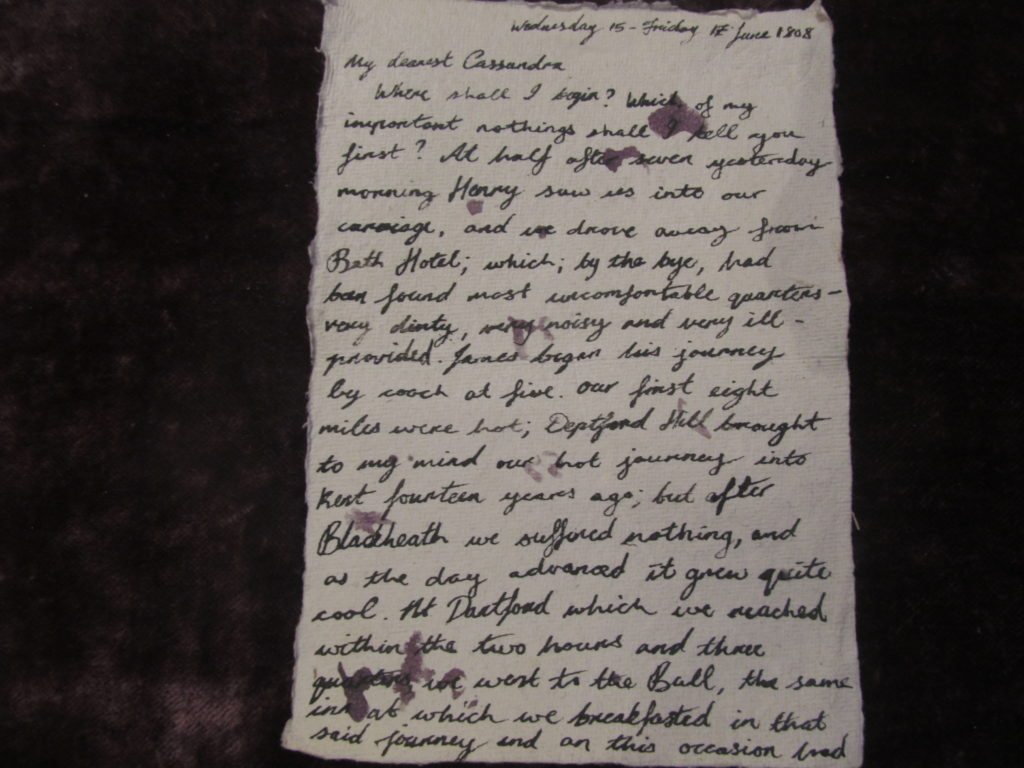 Wednesday 15 - Friday 17 June 1808
My dearest Cassandra
Where shall I begin? Which of my
important nothings shall I tell you
first? At half after seven yesterday
morning Henry saw us into our
carriage, and we drove away from
Bath Hotel; which; by the bye, had
been found most uncomfortable quarters -
very dirty, very noisy and very ill -
provided. James began his journey
by coach at five. Our first eight
miles were hot; Deptford Hill brought
to my mind our hot journey into
Kent fourteen years ago; but after
Blackheath we suffered nothing, and
as the day advanced it grew quite
cool. At Dartford which we reached
within the two hours and three
quarters, we went to the Bull, the same
inn at which we breakfasted in that
said journey and on this occasion had